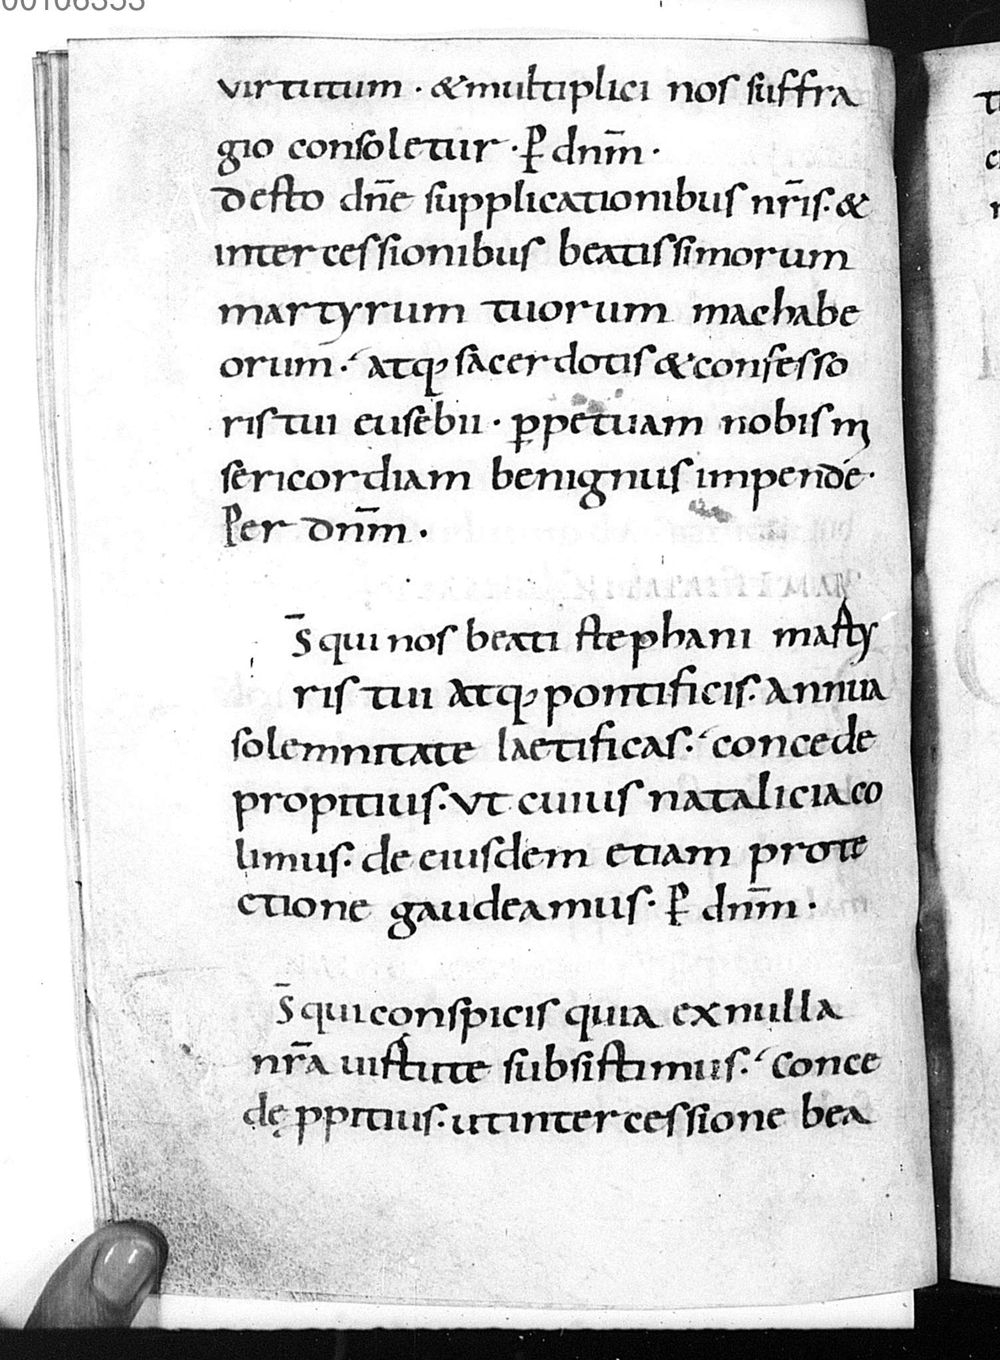 00106353
virtutum · & multiplici nos suffra
gio consoletur · P̲ dnm̄ ·
desto dn̄e supplicationibus nr̄is · &
intercessionibus beatissimorum
martyrum tuorum machabe
orum · atq; sacerdotis & confesso
ris tui eusebii · p̲petuam nobis mi
sericordiam benignus impende ·
Per dnm̄ ·
S̄ qui nos beati stephani marty
ris tui atq; pontificis · annua
solemnitate laetificas · concede
propitius · ut cuius natalicia co
limus · de eiusdem etiam prote
ctione gaudeamus · P̲ dnm̄ ·
S̄ qui conspicis quia ex nulla
nr̄a uirtute subsistimus · conce
dę ppitius · ut intercessione bea